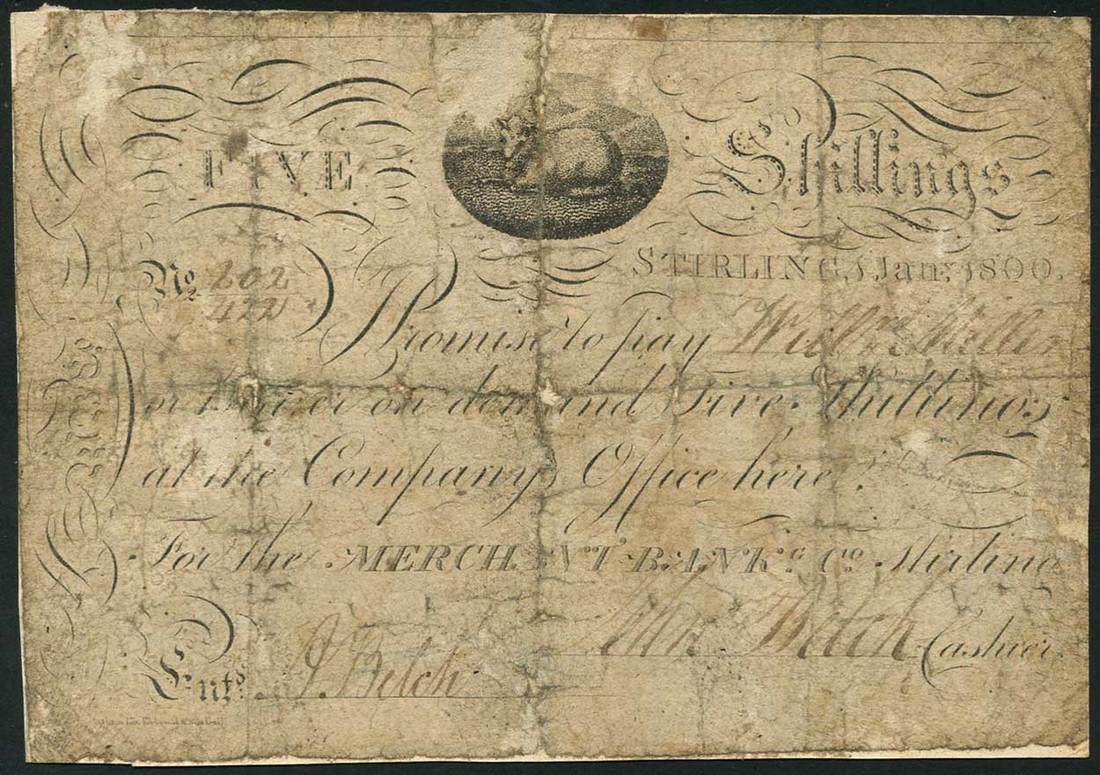 FIVE Shillings
STIRLING, 5 Jany. 1800.
No. 202
422
I Promise to pay Willm. Miller
or bearer on demand Five Shillings
at the Company's Office here.
For the MERCHANT BANKg. Co. Stirling
Jn. Belch Cashier.
Entd. J. Belch